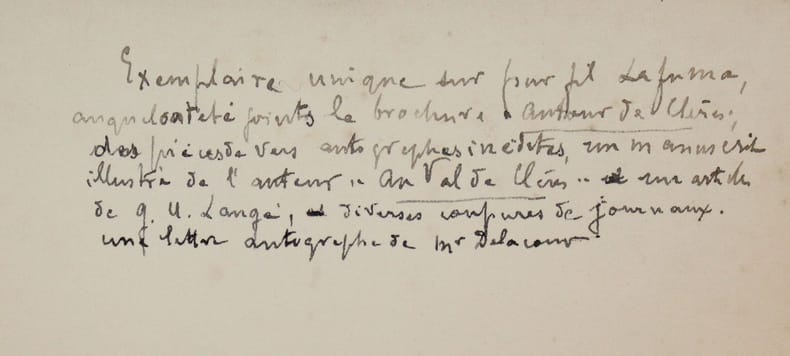 Exemplaire unique sur pur fil Lafuma,
auquel ont été joints la brochure "Autour de Clères",
des pièces de vers autographes inédites, un manuscrit
illustré de l'auteur "Au Val de Clères" et un article
de G. U. Langé, et diverses coupures de journaux.
une lettre autographe de Mr Delacour.